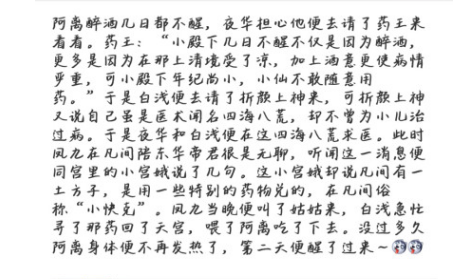 阿离醉酒几日都不醒，夜华担心他便去请了药王来
看看。药王：“小殿下几日不醒不仅是因为醉酒，
更多是因为在那上清境受了凉，加上酒意更使病情
严重，可小殿下年纪尚小，小仙不敢随意用
药。”于是白浅便去请了折颜上神来，可折颜上神
又说自己虽是医术闻名四海八荒，却不曾为小儿治
过病。于是夜华和白浅便在这四海八荒求医。此时
凤九在凡间陪东华帝君很是无聊，听闻这一消息便
同宫里的小宫娥说了几句。这小宫娥却说凡间有一
土方子，是用一些特别的药物兑的，在凡间俗
称“小快克”。凤九当晚便叫了姑姑来，白浅急忙
寻了那药回了天宫，喂了阿离吃了下去。没过多久
阿离身体便不再发热了，第二天便醒了过来~